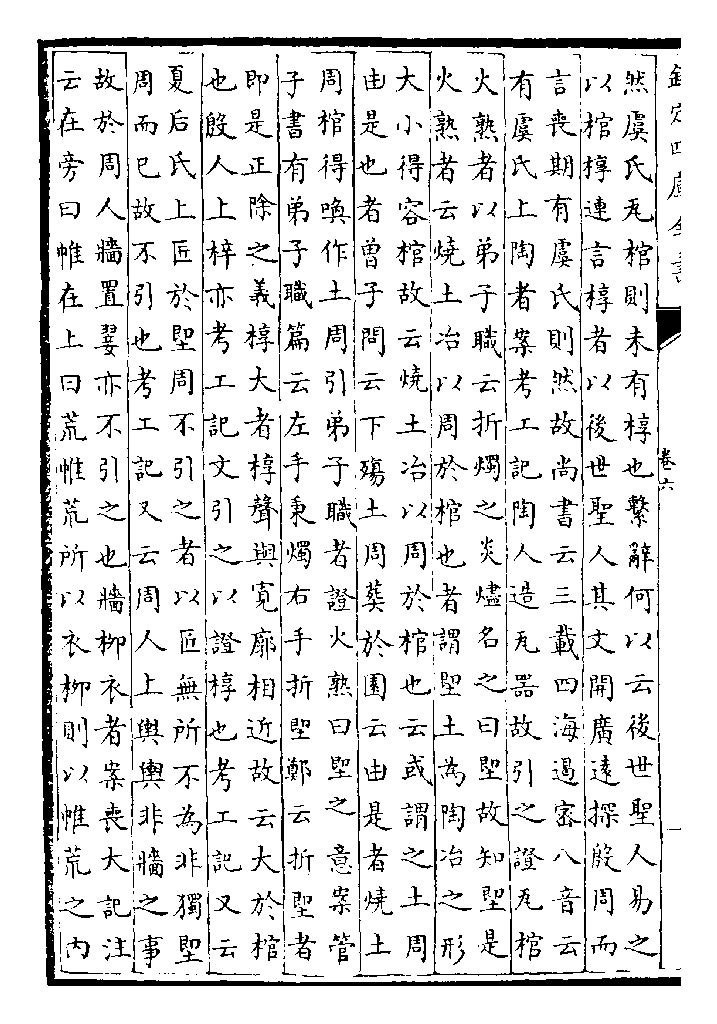 欽定四庫全書
卷六
然虞氏瓦棺則未有椁也繫辭何以云後世聖人易之
以棺椁連言椁者以後世聖人其文開廣逺探殷周而
言喪期有虞氏則然故尚書云三載四海遏密八音云
有虞氏上陶者案考工記陶人造瓦器故引之證瓦棺
火熟者以弟子職云折燭之炎燼名之曰聖故知聖是
火熟者云燒土冶以周於棺也者謂聖土為陶冶之形
大小得容棺故云燒土冶以周於棺也云或謂之土周
由是也者曾子問云下殤土周葬於園云由是者燒土
周棺得喚作土周引弟子職者證火熟曰聖之意案管
子書有弟子職篇云左手秉燭右手折聖鄭云折聖者
即是正除之義椁大者椁聲與寛廓相近故云大於棺
也殷人上梓亦考工記文引之以證椁也考工記又云
夏后氏上匠於聖周不引之者以匠無所不為非獨聖
周而已故不引也考工記又云周人上輿輿非牆之事
故於周人牆置翣亦不引之也牆柳衣者案喪大記注
云在旁曰帷在上曰荒帷荒所以衣柳則以帷荒之内